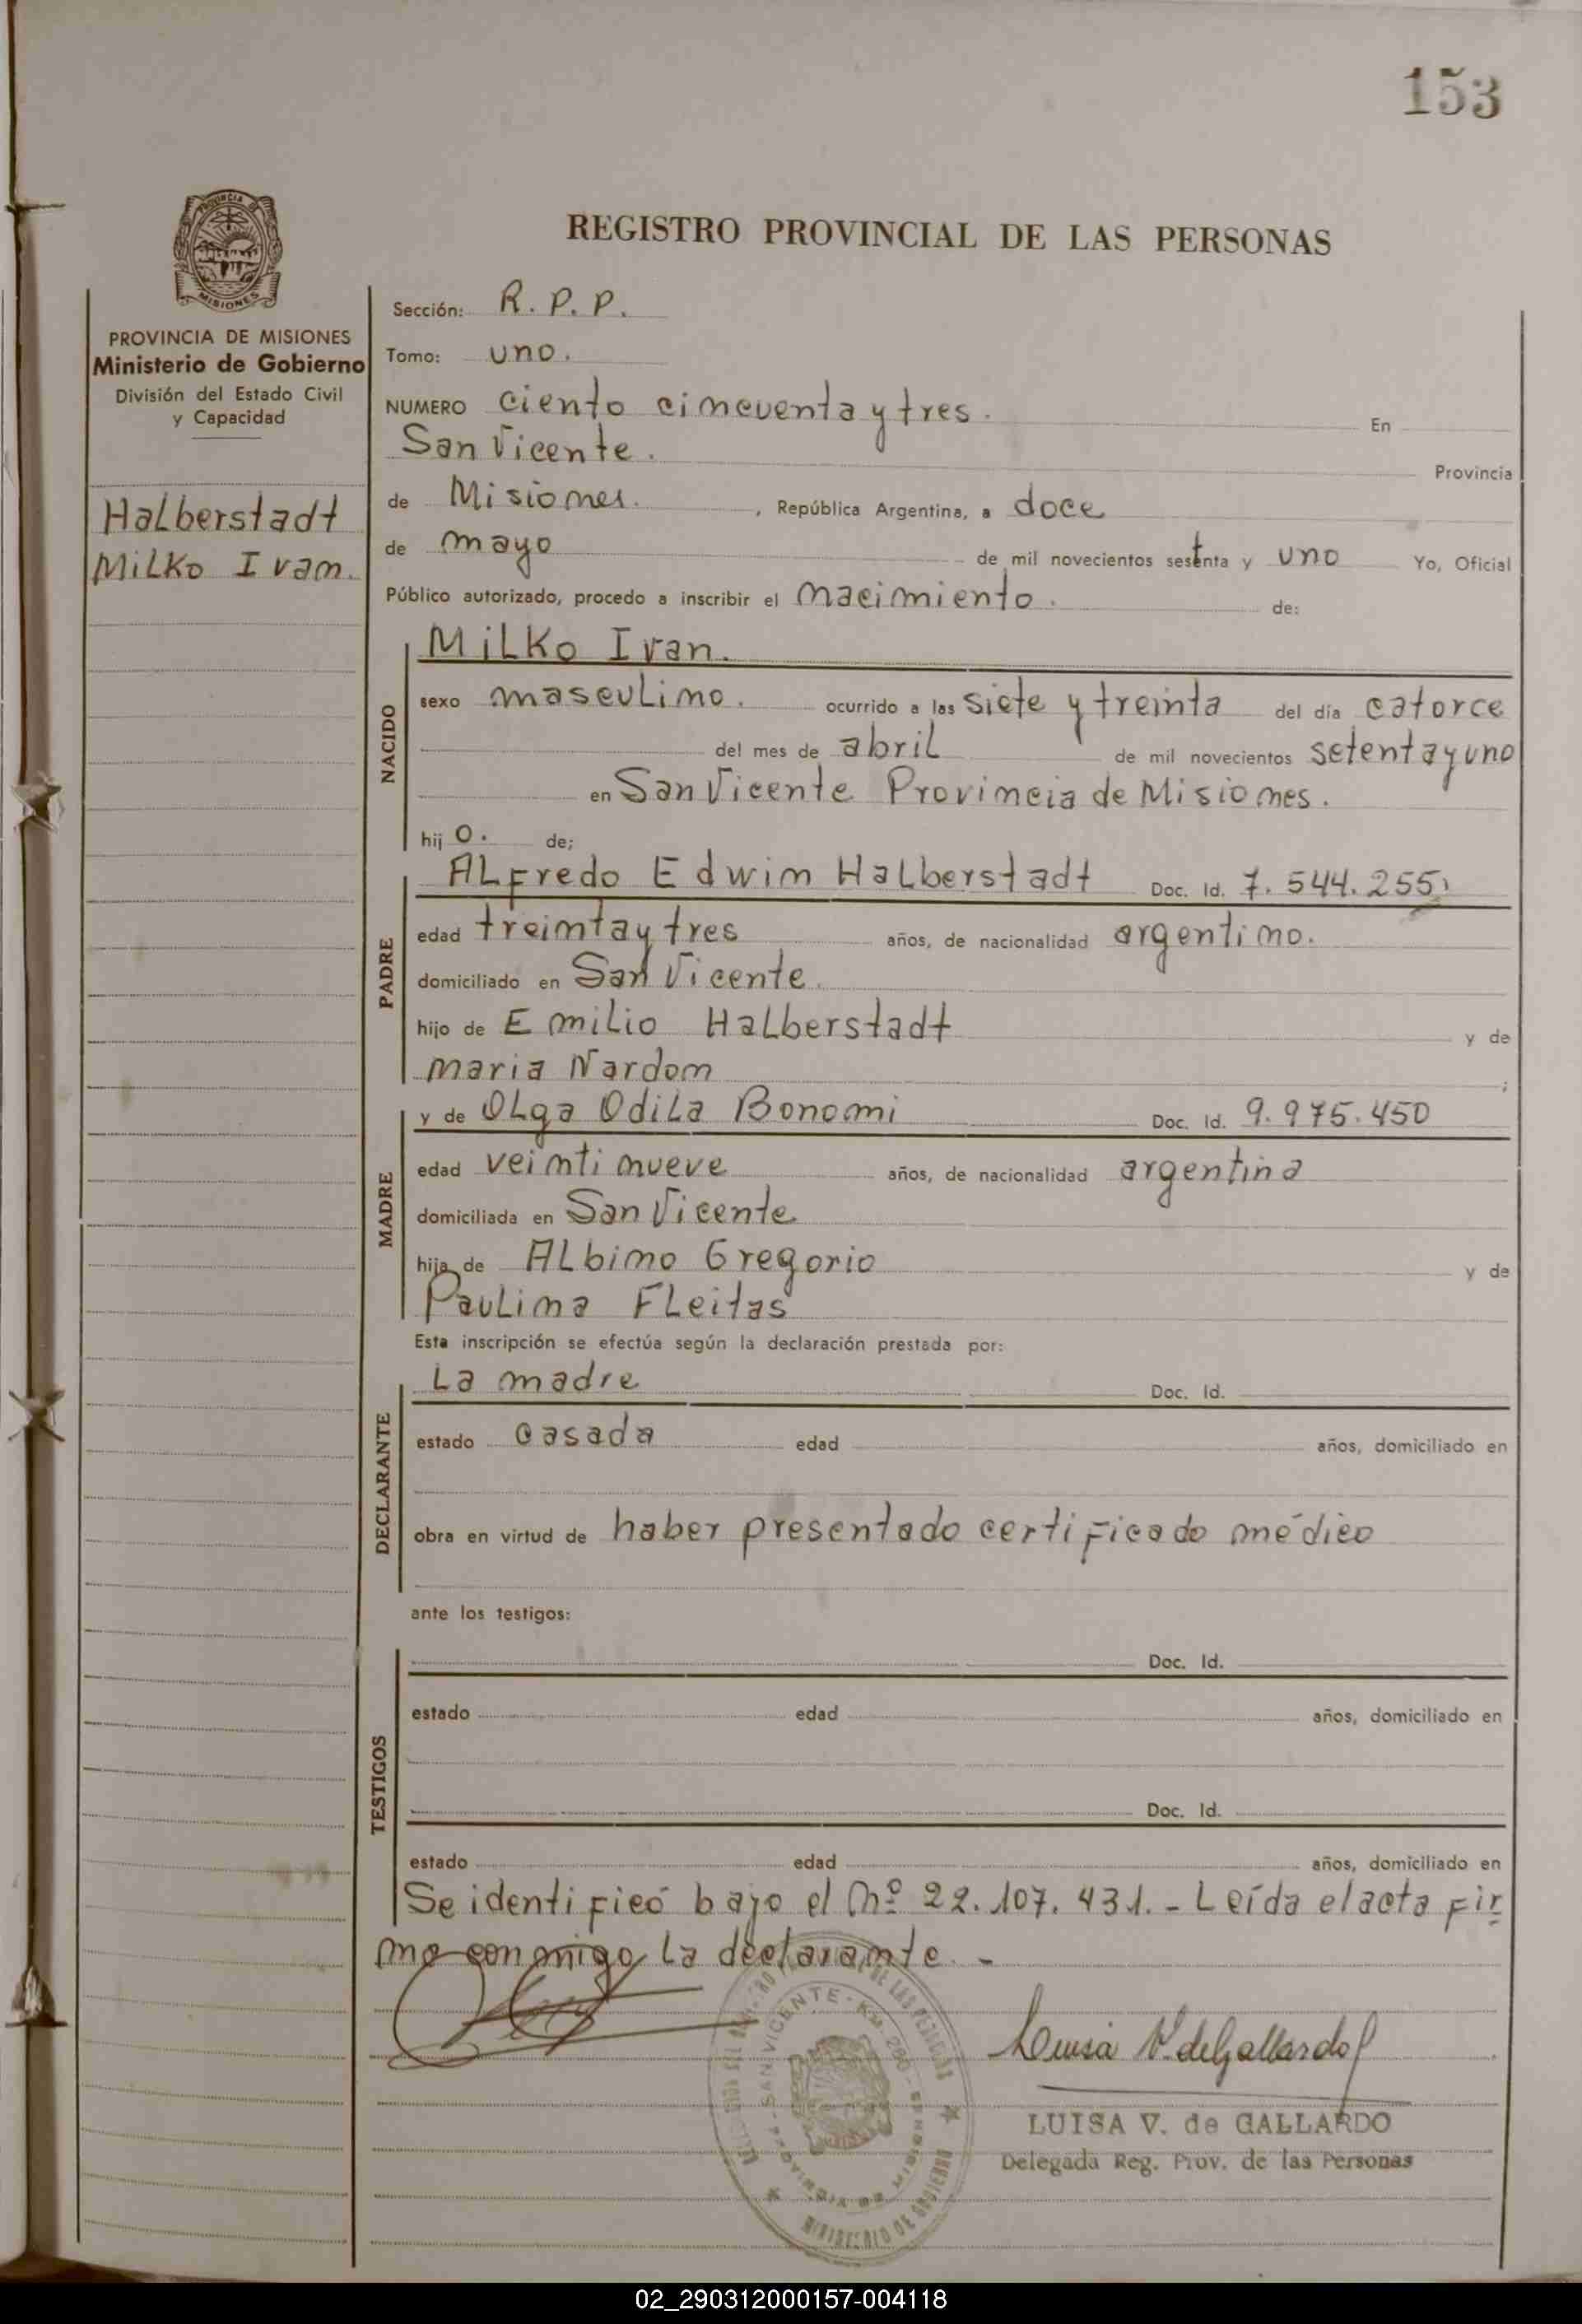 153
REGISTRO PROVINCIAL DE LAS PERSONAS
PROVINCIA DE MISIONES
Ministerio de Gobierno
División del Estado Civil
y Capacidad
Halberstadt
Milko Ivan.
Sección: R. P. P.
Tomo: uno.
NUMERO ciento cincuenta y tres. En
San Vicente. Provincia
de Misiones. , República Argentina, a doce
de mayo de mil novecientos setenta y uno Yo, Oficial
Público autorizado, procedo a inscribir el nacimiento. de:
NACIDO
Milko Ivan.
sexo masculino. ocurrido a las siete y treinta del día catorce
del mes de abril de mil novecientos setenta y uno
en San Vicente Provincia de Misiones.
hijo. de;
PADRE
Alfredo Edwin Halberstadt Doc. Id. 7.544.255.
edad treinta y tres años, de nacionalidad argentino.
domiciliado en San Vicente.
hijo de Emilio Halberstadt y de
Maria Nardon ;
MADRE
y de Olga Odila Bonomi Doc. Id. 9.975.450
edad veintinueve años, de nacionalidad argentina
domiciliada en San Vicente
hija de Albino Gregorio y de
Paulina Fleitas
Esta inscripción se efectúa según la declaración prestada por:
DECLARANTE
La madre Doc. Id.
estado casada edad años, domiciliado en
obra en virtud de haber presentado certificado médico
ante los testigos:
TESTIGOS
Doc. Id.
estado edad años, domiciliado en
Doc. Id.
estado edad años, domiciliado en
Se identificó bajo el Nº 22.107.431.- Leída el acta fir
ma conmigo la declarante.-
Luisa V. de Gallardo
LUISA V. de GALLARDO
Delegada Reg. Prov. de las Personas
SAN VICENTE - KM 260
MINISTERIO DE GOBIERNO
02_290312000157-004118